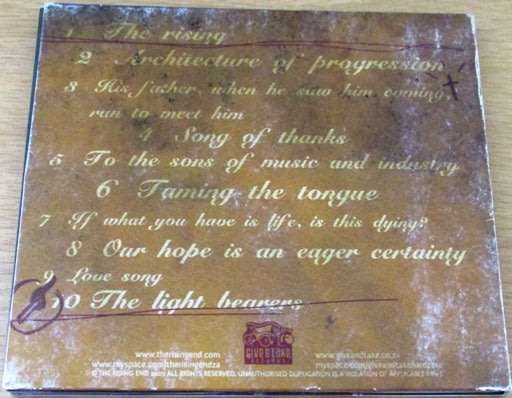 1 The rising
2 Architecture of progression
3 His father, when he saw him coming,
run to meet him
4 Song of thanks
5 To the sons of music and industry
6 Taming the tongue
7 If what you have is life, is this dying?
8 Our hope is an eager certainty
9 Love song
10 The light bearers
GIVE & TAKE
www.therisingend.com
www.myspace.com/therisingendza
www.giveandtake.co.za
© THE RISING END ALL RIGHTS RESERVED. UNAUTHORISED DUPLICATION IS A VIOLATION OF APPLICABLE LAWS